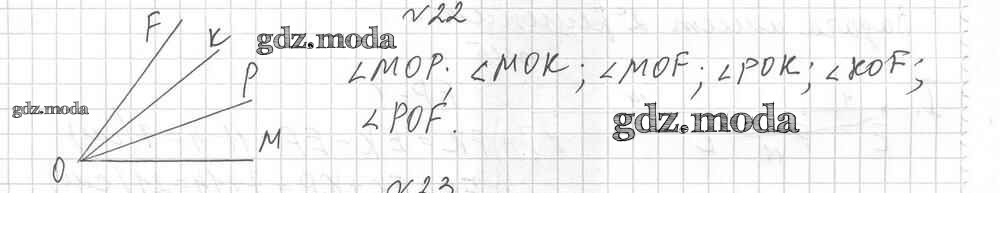 №22
F K gdz.moda
∠MOP; ∠MOK; ∠MOF; ∠POK; ∠KOF;
P
gdz.moda
∠POF.
gdz.moda
M
O
№23